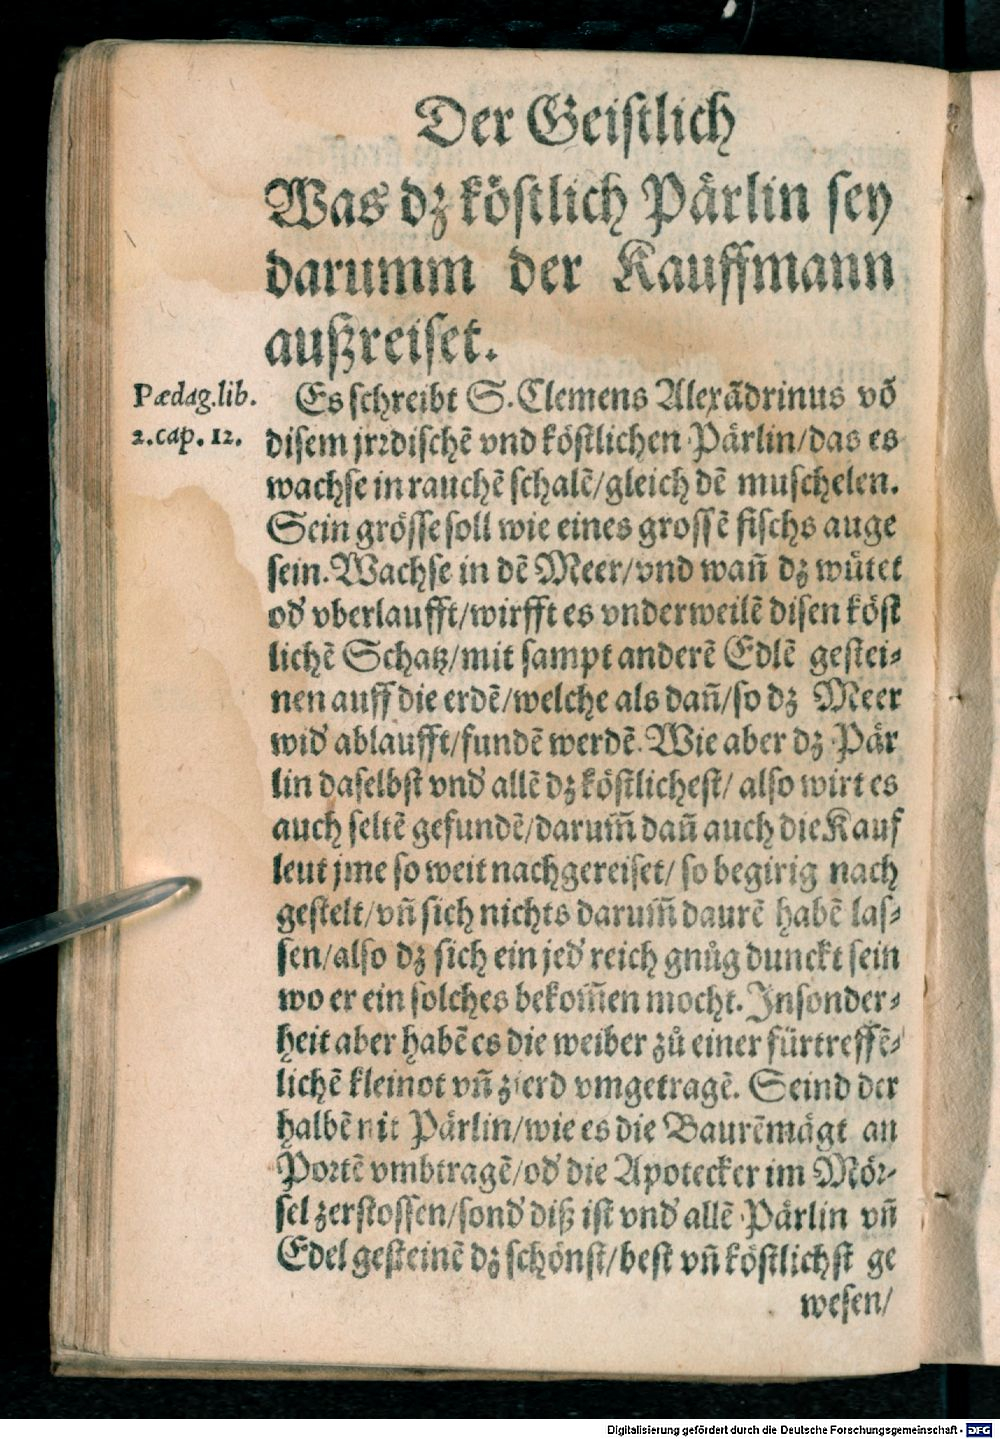 Der Geistlich
Was dz köstlich Pärlin sey
darumm der Kauffmann
außreiset.
Pædag. lib.
2. cap. 12.
Es schreibt S. Clemens Alexãdrinus võ
disem jrrdischẽ vnd köstlichen Pärlin/das es
wachse in rauchẽ schalẽ/gleich dẽ muschelen.
Sein grösse soll wie eines grossẽ fischs auge
sein. Wachse in dẽ Meer/vnd wañ dz wütet
od' vberlaufft/wirfft es vnderweilẽ disen köst
lichẽ Schatz/mit sampt anderẽ Edlẽ gestei-
nen auff die erdẽ/welche als dañ/so dz Meer
wid' ablaufft/fundẽ werdẽ. Wie aber dz Pär
lin daselbst vnd' allẽ dz köstlichest/ also wirt es
auch seltẽ gefundẽ/darum̃ dañ auch die Kauf
leut jme so weit nachgereiset/ so begirig nach
gestelt/vñ sich nichts darum̃ daurẽ habẽ las-
sen/also dz sich ein jed' reich gnůg dunckt sein
wo er ein solches bekom̃en mocht. Insonder-
heit aber habẽ es die weiber zů einer fürtreffẽ-
lichẽ kleinot vñ zierd vmgetragẽ. Seind der
halbẽ nit Pärlin/wie es die Baurẽmägt an
Portẽ vmbtragẽ/od' die Apotecker im Mör-
sel zerstossen/sond' diß ist vnd' allẽ Pärlin vñ
Edel gesteinẽ dz schönst/best vñ köstlichst ge
wesen/
Digitalisierung gefördert durch die Deutsche Forschungsgemeinschaft - DFG